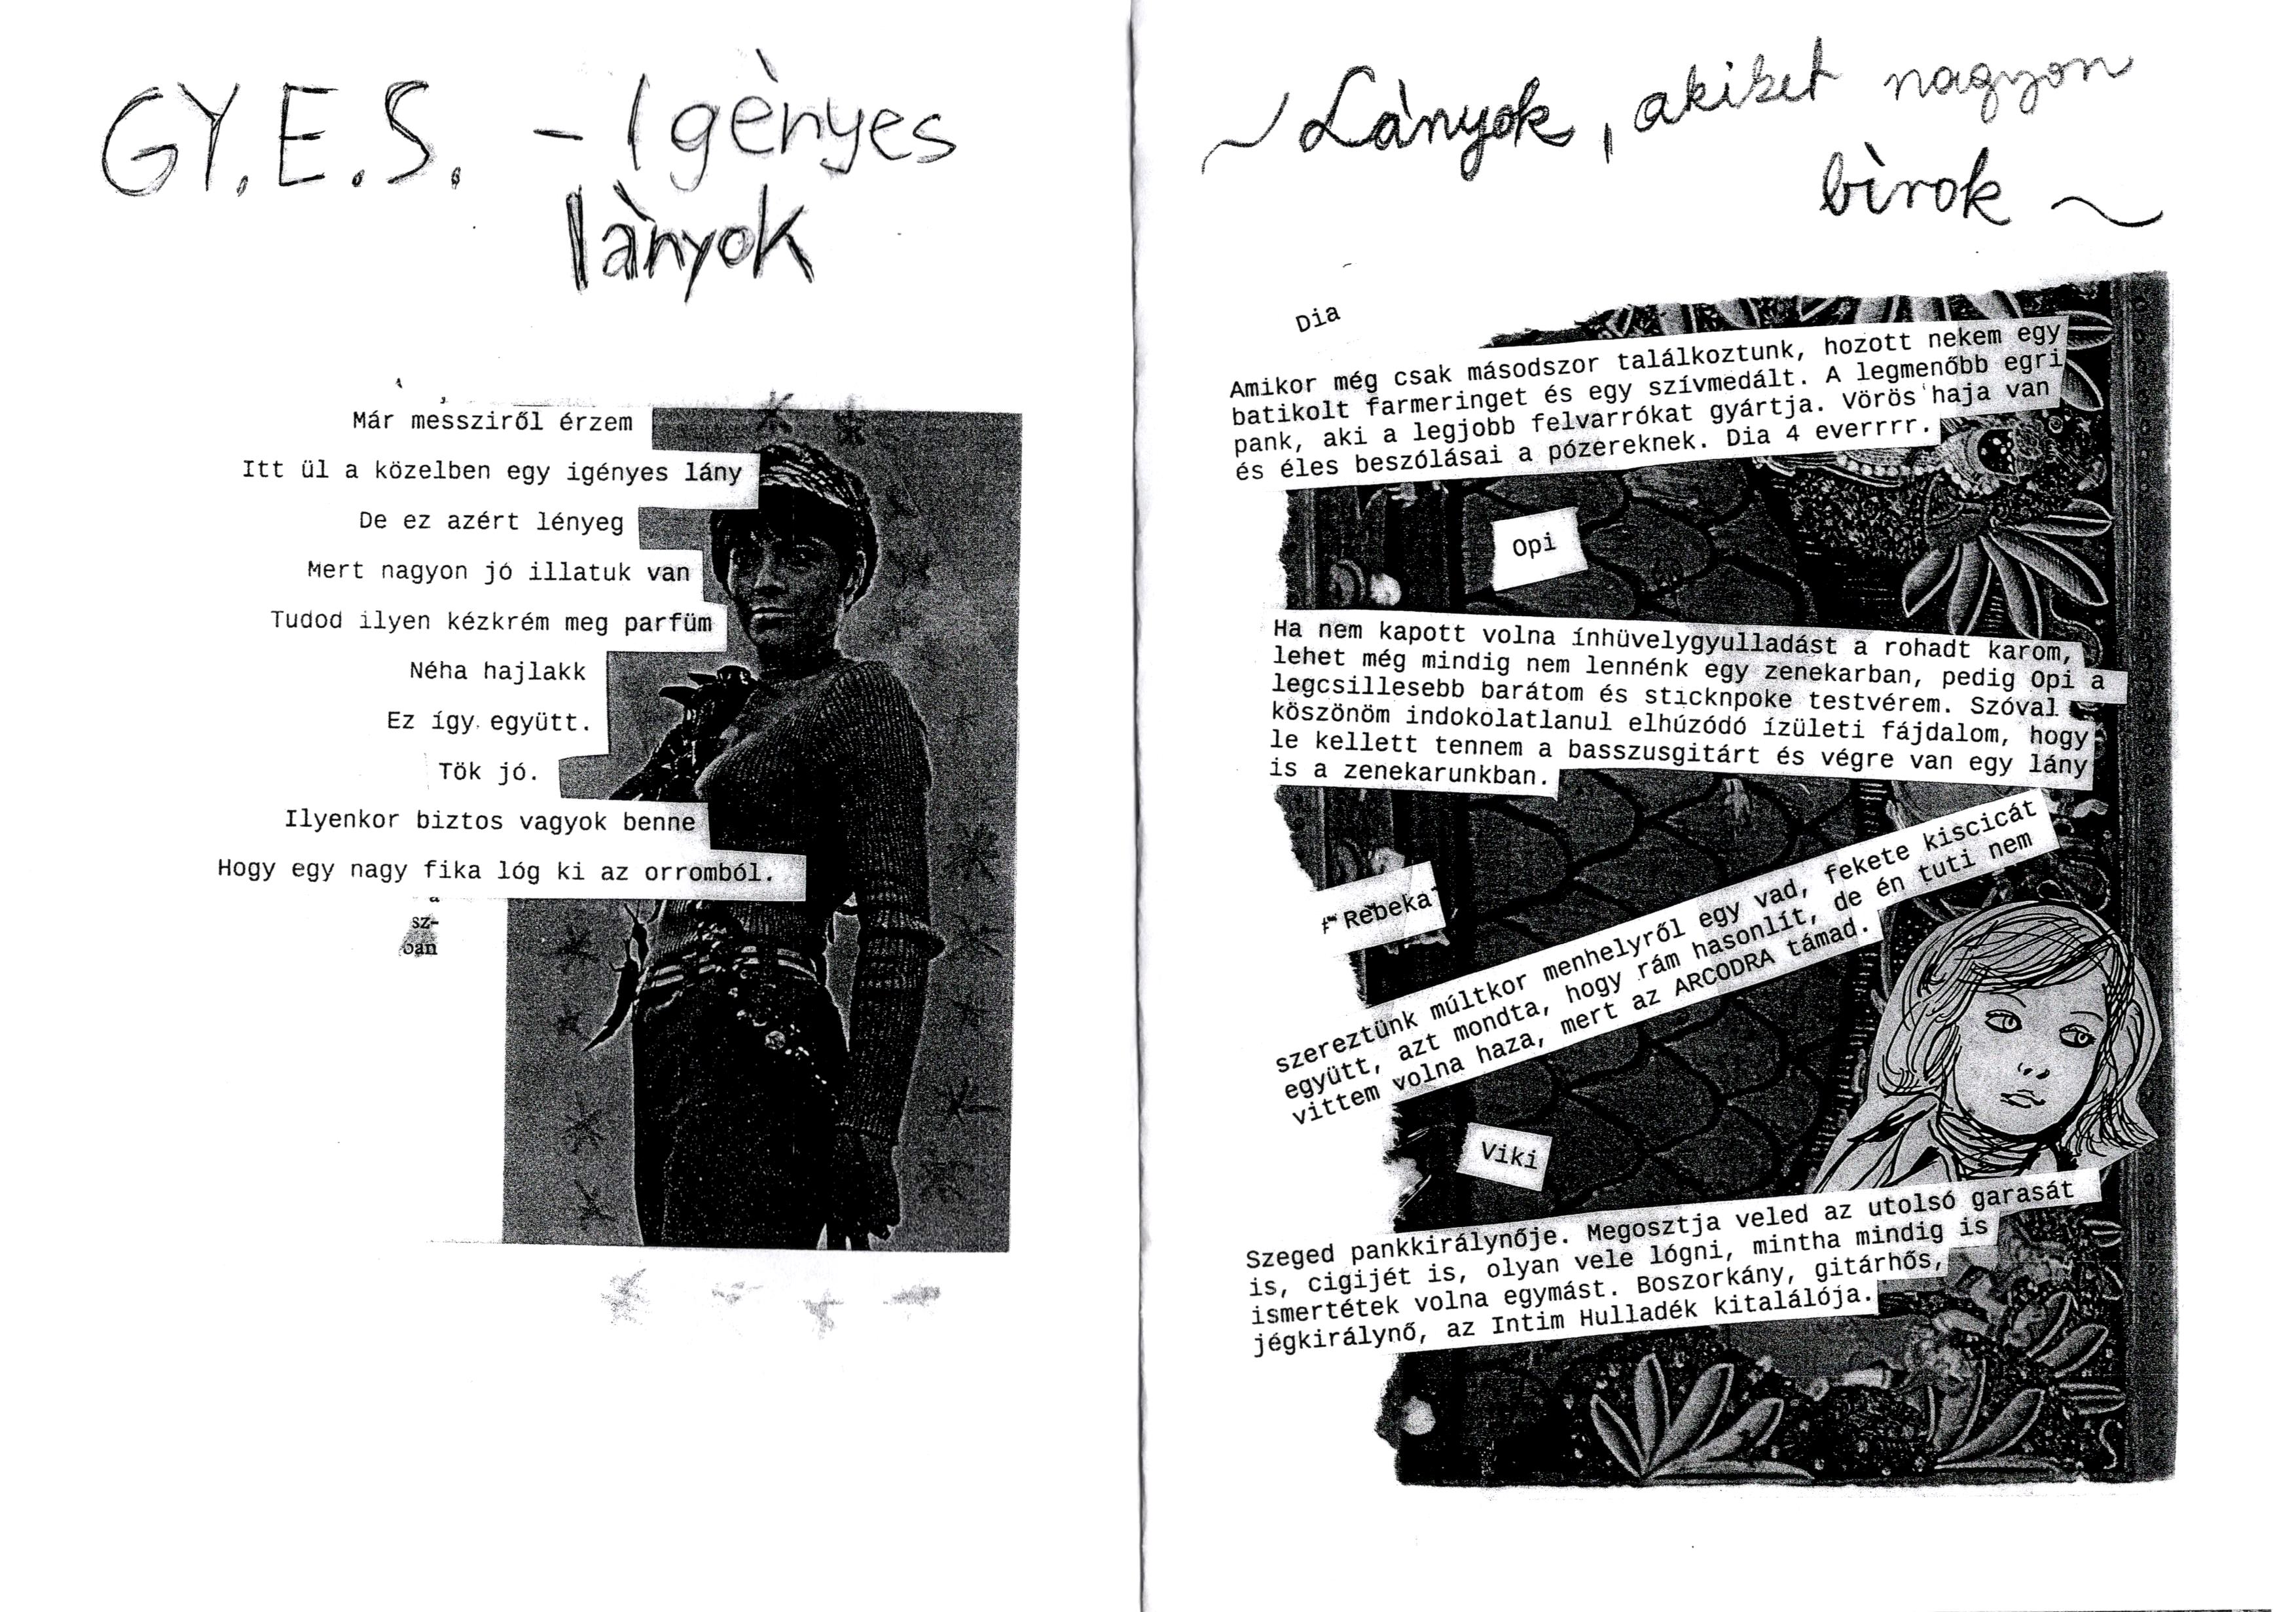 GY.E.S. - Igènyes
lànyok
Már messziről érzem
Itt ül a közelben egy igényes lány
De ez azért lényeg
Mert nagyon jó illatuk van
Tudod ilyen kézkrém meg parfüm
Néha hajlakk
Ez így együtt.
Tök jó.
Ilyenkor biztos vagyok benne
Hogy egy nagy fika lóg ki az orromból.
a
sz-
ban
~ Lànyok, akiket nagyon
bìrok ~
Dia
Amikor még csak másodszor találkoztunk, hozott nekem egy
batikolt farmeringet és egy szívmedált. A legmenőbb egri
pank, aki a legjobb felvarrókat gyártja. Vörös haja van
és éles beszólásai a pózereknek. Dia 4 everrrr.
Opi
Ha nem kapott volna ínhüvelygyulladást a rohadt karom,
lehet még mindig nem lennénk egy zenekarban, pedig Opi a
legcsillesebb barátom és sticknpoke testvérem. Szóval
köszönöm indokolatlanul elhúzódó ízületi fájdalom, hogy
le kellett tennem a basszusgitárt és végre van egy lány
is a zenekarunkban.
Rebeka
szereztünk múltkor menhelyről egy vad, fekete kiscicát
együtt, azt mondta, hogy rám hasonlít, de én tuti nem
vittem volna haza, mert az ARCODRA támad.
Viki
Szeged pankkirálynője. Megosztja veled az utolsó garasát
is, cigijét is, olyan vele lógni, mintha mindig is
ismertétek volna egymást. Boszorkány, gitárhős,
jégkirálynő, az Intim Hulladék kitalálója.